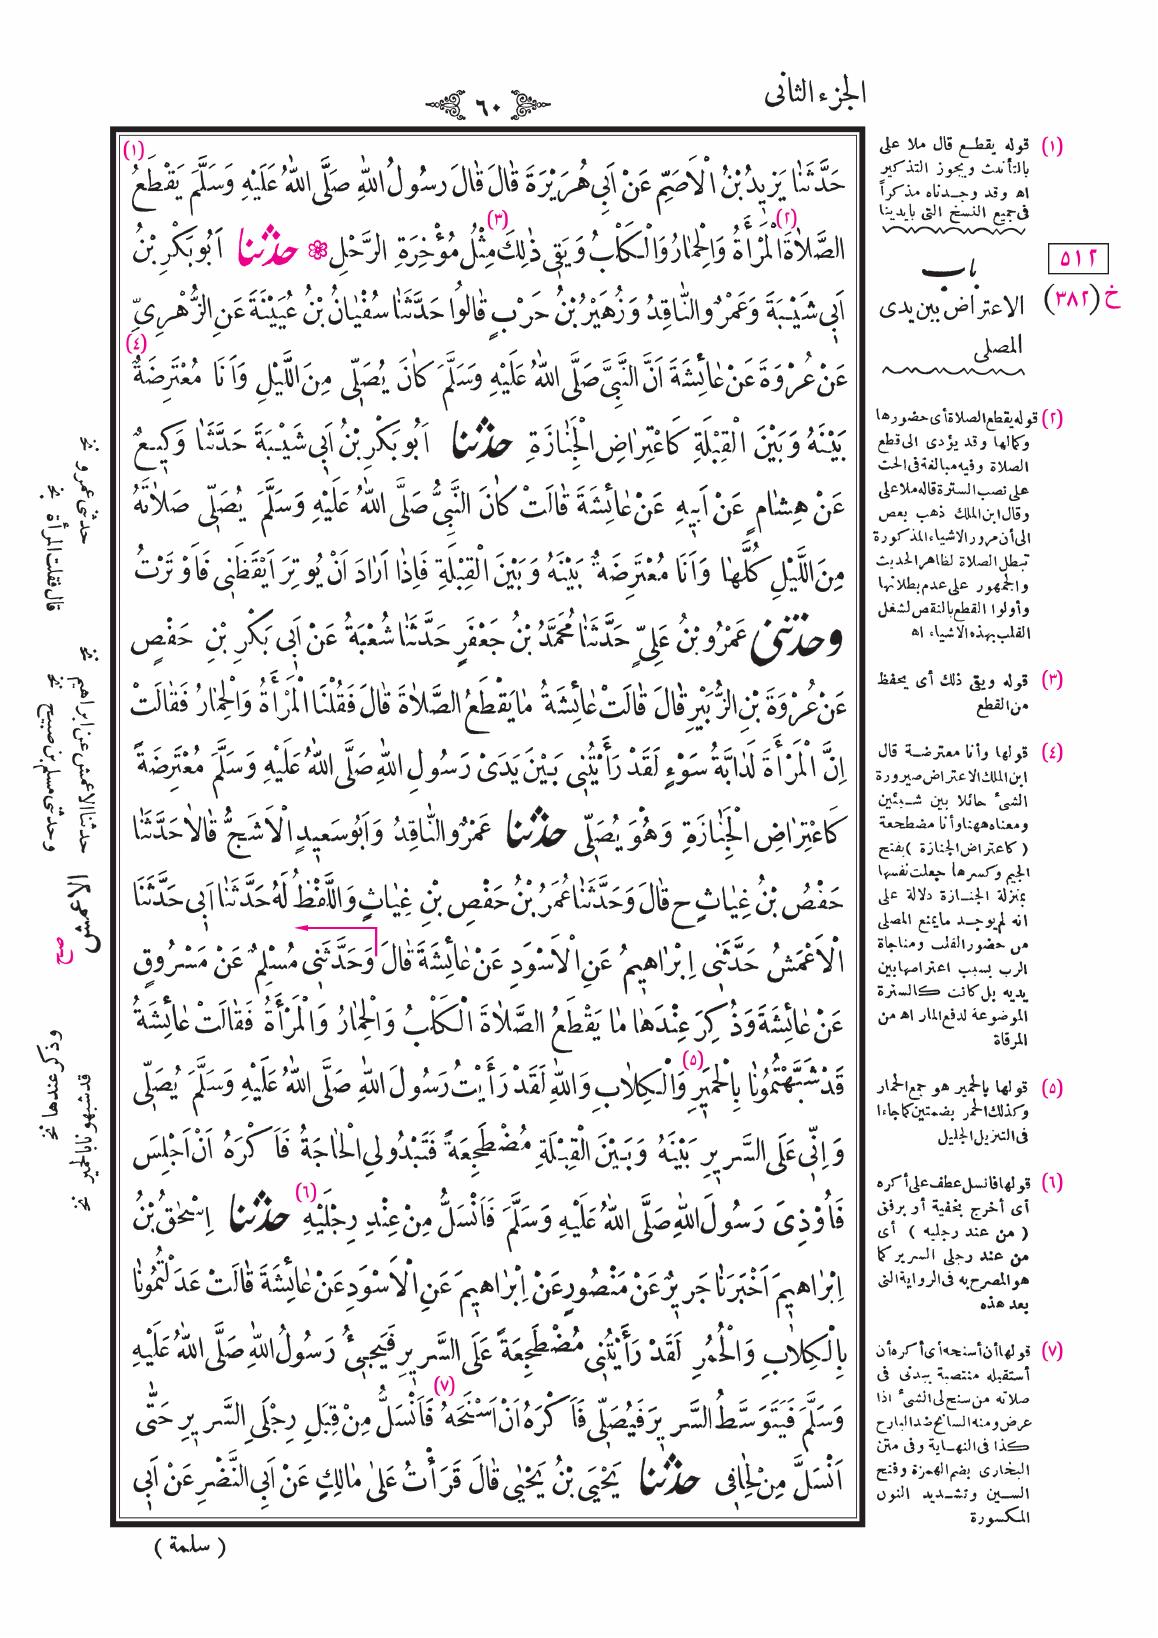 الجزء الثانى
٦٠
(١)
حَدَّثَنَا يَزِيدُ بْنُ الْاَصَمِّ عَنْ اَبِي هُرَيْرَةَ قَالَ قَالَ رَسُولُ اللهِ صَلَّى اللهُ عَلَيْهِ وَسَلَّمَ يَقْطَعُ
(٢) (٣)
الصَّلَاةَ الْمَرْأَةُ وَالْحِمَارُ وَالْكَلْبُ وَيَقِى ذٰلِكَ مِثْلُ مُؤْخِرَةِ الرَّحْلِ ❁ حدثنا اَبُو بَكْرِ بْنُ
اَبِي شَيْبَةَ وَعَمْرٌو النَّاقِدُ وَزُهَيْرُ بْنُ حَرْبٍ قَالُوا حَدَّثَنَا سُفْيَانُ بْنُ عُيَيْنَةَ عَنِ الزُّهْرِىِّ
(٤)
عَنْ عُرْوَةَ عَنْ عَائِشَةَ اَنَّ النَّبِىَّ صَلَّى اللهُ عَلَيْهِ وَسَلَّمَ كَانَ يُصَلِّى مِنَ اللَّيْلِ وَاَنَا مُعْتَرِضَةٌ
بَيْنَهُ وَبَيْنَ الْقِبْلَةِ كَاعْتِرَاضِ الْجَنَازَةِ حدثنا اَبُو بَكْرِ بْنُ اَبِي شَيْبَةَ حَدَّثَنَا وَكِيعٌ
عَنْ هِشَامٍ عَنْ اَبِيهِ عَنْ عَائِشَةَ قَالَتْ كَانَ النَّبِىُّ صَلَّى اللهُ عَلَيْهِ وَسَلَّمَ يُصَلِّى صَلَاتَهُ
مِنَ اللَّيْلِ كُلَّهَا وَاَنَا مُعْتَرِضَةٌ بَيْنَهُ وَبَيْنَ الْقِبْلَةِ فَاِذَا اَرَادَ اَنْ يُوتِرَ اَيْقَظَنِى فَاَوْتَرْتُ
وحدثنى عَمْرُو بْنُ عَلِىٍّ حَدَّثَنَا مُحَمَّدُ بْنُ جَعْفَرٍ حَدَّثَنَا شُعْبَةُ عَنْ اَبِى بَكْرِ بْنِ حَفْصٍ
عَنْ عُرْوَةَ بْنِ الزُّبَيْرِ قَالَ قَالَتْ عَائِشَةُ مَا يَقْطَعُ الصَّلَاةَ قَالَ فَقُلْنَا الْمَرْأَةُ وَالْحِمَارُ فَقَالَتْ
اِنَّ الْمَرْأَةَ لَدَابَّةُ سَوْءٍ لَقَدْ رَأَيْتُنِى بَيْنَ يَدَىْ رَسُولِ اللهِ صَلَّى اللهُ عَلَيْهِ وَسَلَّمَ مُعْتَرِضَةً
كَاعْتِرَاضِ الْجَنَازَةِ وَهُوَ يُصَلِّى حدثنا عَمْرٌو النَّاقِدُ وَاَبُو سَعِيدٍ الْاَشَجُّ قَالَا حَدَّثَنَا
حَفْصُ بْنُ غِيَاثٍ ح قَالَ وَحَدَّثَنَا عُمَرُ بْنُ حَفْصِ بْنِ غِيَاثٍ وَاللَّفْظُ لَهُ حَدَّثَنَا اَبِى حَدَّثَنَا
الْاَعْمَشُ حَدَّثَنِى اِبْرَاهِيمُ عَنِ الْاَسْوَدِ عَنْ عَائِشَةَ قَالَ وَحَدَّثَنِى مُسْلِمٌ عَنْ مَسْرُوقٍ
عَنْ عَائِشَةَ وَذُكِرَ عِنْدَهَا مَا يَقْطَعُ الصَّلَاةَ الْكَلْبُ وَالْحِمَارُ وَالْمَرْأَةُ فَقَالَتْ عَائِشَةُ
(٥)
قَدْ شَبَّهْتُمُونَا بِالْحَمِيرِ وَالْكِلَابِ وَاللهِ لَقَدْ رَأَيْتُ رَسُولَ اللهِ صَلَّى اللهُ عَلَيْهِ وَسَلَّمَ يُصَلِّى
وَاِنِّى عَلَى السَّرِيرِ بَيْنَهُ وَبَيْنَ الْقِبْلَةِ مُضْطَجِعَةً فَتَبْدُو لِي الْحَاجَةُ فَاَكْرَهُ اَنْ اَجْلِسَ
(٦)
فَاُوذِىَ رَسُولَ اللهِ صَلَّى اللهُ عَلَيْهِ وَسَلَّمَ فَاَنْسَلُّ مِنْ عِنْدِ رِجْلَيْهِ حدثنا اِسْحٰقُ بْنُ
اِبْرَاهِيمَ اَخْبَرَنَا جَرِيرٌ عَنْ مَنْصُورٍ عَنْ اِبْرَاهِيمَ عَنِ الْاَسْوَدِ عَنْ عَائِشَةَ قَالَتْ عَدَلْتُمُونَا
بِالْكِلَابِ وَالْحُمُرِ لَقَدْ رَأَيْتُنِى مُضْطَجِعَةً عَلَى السَّرِيرِ فَيَجِيءُ رَسُولُ اللهِ صَلَّى اللهُ عَلَيْهِ
(٧)
وَسَلَّمَ فَيَتَوَسَّطُ السَّرِيرَ فَيُصَلِّى فَاَكْرَهُ اَنْ اَسْنَحَهُ فَاَنْسَلُّ مِنْ قِبَلِ رِجْلَىِ السَّرِيرِ حَتّٰى
اَنْسَلَّ مِنْ لِحَافِى حدثنا يَحْيَى بْنُ يَحْيٰى قَالَ قَرَأْتُ عَلٰى مَالِكٍ عَنْ اَبِي النَّضْرِ عَنْ اَبِى
( سلمة )
(١) قوله يقطع قال ملا على
بالتأنيث ويجوز التذكير
اه وقد وجدناه مذكراً
فى جميع النسخ التى بايدينا
٥١٢
خ (٣٨٢)
باب
الاعتراض بين يدى
المصلى
(٢) قوله يقطع الصلاة أى حضورها
وكمالها وقد يؤدى الى قطع
الصلاة وفيه مبالغة فى الحث
على نصب السترة قاله ملا على
وقال ابن الملك ذهب بعض
الى أن مرور الاشياء المذكورة
تبطل الصلاة لظاهر الحديث
والجمهور على عدم بطلانها
وأولوا القطع بالنقص لشغل
القلب بهذه الاشياء اه
(٣) قوله ويقى ذلك أى يحفظ
من القطع
(٤) قولها وأنا معترضة قال
ابن الملك الاعتراض صيرورة
الشىء حائلا بين شيئين
ومعناه ههنا وأنا مضطجعة
( كاعتراض الجنازة ) بفتح
الجيم وكسرها جعلت نفسها
بمنزلة الجنازة دلالة على
انه لم يوجد ما يمنع المصلى
من حضور القلب ومناجاة
الرب بسبب اعتراضها بين
يديه بل كانت كالسترة
الموضوعة لدفع المار اه من
المرقاة
(٥) قولها بالحمير هو جمع الحمار
وكذلك الحمر بضمتين كما جاءا
فى التنزيل الجليل
(٦) قولها فانسل عطف على أكره
أى أخرج بخفية أو برفق
( من عند رجليه ) أى
من عند رجلى السرير كما
هو المصرح به فى الرواية التى
بعد هذه
(٧) قولها أن أسنحه أى أكره أن
أستقبله منتصبة ببدنى فى
صلاته من سنح لى الشىء اذا
عرض ومنه السانح ضد البارح
كذا فى النهاية وفى متن
البخارى بضم الهمزة وفتح
السين وتشديد النون
المكسورة
حدثنى عمرو نخ
قال فقلت المرأة نخ
حدثنا الاعمش عن ابراهيم نخ
وحدثنى مسلم بن صبيح نخ
صح
وذكر عندها نخ
قد شبهونا بالحمير نخ